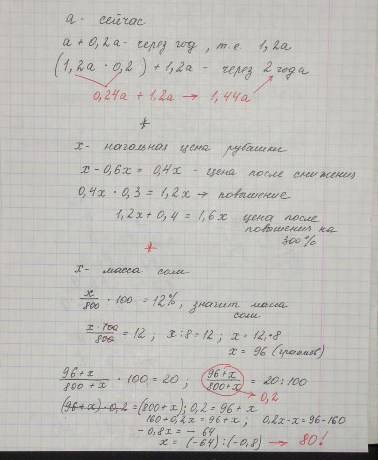 а - сейчас
а + 0,2а - через год, т.е. 1,2а
(1,2а · 0,2) + 1,2а - через 2 года
0,24а + 1,2а → 1,44а
*
х - начальная цена рубашки
х - 0,6х = 0,4х - цена после снижения
0,4х · 0,3 = 1,2х → повышение
1,2х + 0,4 = 1,6х цена после
повышения на
300%
*
х - масса соли
х/800 · 100 = 12%, значит масса
соли
х·100/800 = 12; х : 8 = 12; х = 12·8
х = 96 (граммов)
96+х/800+х · 100 = 20; 96+х/800+х = 20:100
0,2
(96+х)·0,2 = (800+х); 0,2 = 96+х
160+0,2х = 96+х; 0,2х-х = 96-160
-0,8х = -64
х = (-64) : (-0,8) → 80!